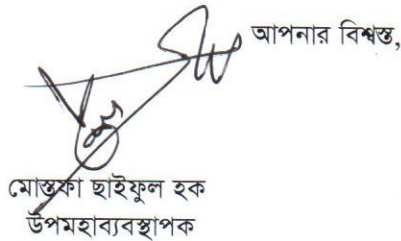 আপনার বিশ্বস্ত,
মোস্তফা ছাইফুল হক
উপমহাব্যবস্থাপক